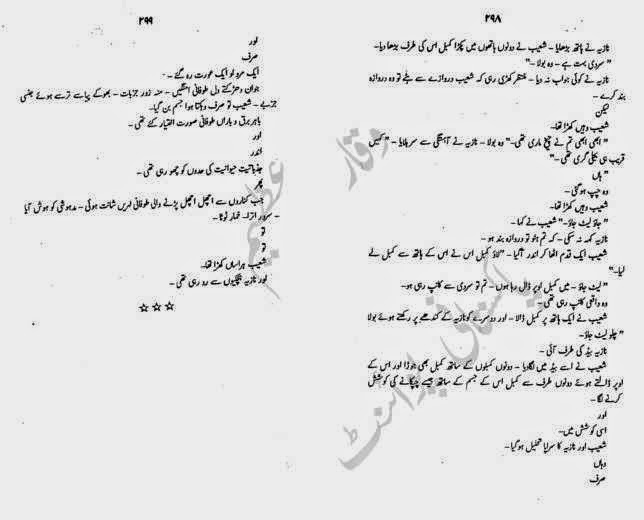 ۲۹۸
نازیہ نے ہاتھ بڑھایا۔ شعیب نے دونوں ہاتھوں میں پکڑا کمبل اس کی طرف بڑھا دیا۔
"سردی بہت ہے۔ وہ بولا۔"
نازیہ نے کوئی جواب نہ دیا۔ منتظر کھڑی رہی کہ شعیب دروازے سے ہٹے تو وہ دروازہ
بند کرے۔
لیکن
شعیب وہیں کھڑا تھا۔
"ابھی ابھی تم نے چیخ ماری تھی۔" وہ بولا۔ نازیہ نے آہستگی سے سر ہلایا۔ "کہیں
قریب ہی بجلی گری تھی۔"
"ہاں
وہ چپ ہو گئی۔
شعیب وہیں کھڑا تھا۔
"جاؤ لیٹ جاؤ۔" شعیب نے کہا۔
نازیہ کہہ نہ سکی۔ کہ تم ہٹو تو دروازہ بند ہو۔
شعیب ایک قدم اٹھا کر اندر آ گیا۔ "لاؤ کمبل اس نے اس کے ہاتھ سے کمبل لے
لیا۔"
"لیٹ جاؤ۔ میں کمبل اوپر ڈال رہا ہوں۔ تم تو سردی سے کانپ رہی ہو۔
وہ واقعی کانپ رہی تھی۔
شعیب نے ایک ہاتھ پر کمبل ڈالا۔ اور دوسرے کو نازیہ کے کندھے پر رکھتے ہوئے بولا
"چلو لیٹ جاؤ۔
نازیہ بیڈ کی طرف آئی۔
شعیب نے اسے بیڈ میں لٹا دیا۔ دونوں کمبلوں کے ساتھ کمبل بھی جوڑا اور اس کے
اوپر ڈالتے ہوئے دونوں طرف سے کمبل اس کے جسم کے ساتھ جیسے چپکانے کی کوشش
کرنے لگا۔
اور
اسی کوشش میں۔
شعیب اور نازیہ کا سراپا تحلیل ہو گیا۔
وہاں
صرف
۲۹۹
اور
صرف
ایک مرد اور ایک عورت رہ گئے۔
جوان دھڑکتے دل طوفانی امنگیں۔ منہ زور جذبات۔ بھوکے پیاسے ترسے ہوئے جنسی
جذبے۔ شعیب تو صرف دہکتا ہوا جسم بن گیا۔
باہر برق و باراں طوفانی صورت اختیار کئے تھی۔
اور
اندر
جذباتیت حیوانیت کی حدوں کو چھو رہی تھی۔
پھر
جب کناروں سے اچھل اچھل پڑنے والی طوفانی لہریں شانت ہوئی۔ مدہوشی کو ہوش آیا
۔ سرور اترا۔ خمار ٹوٹا۔
تو
تو
شعیب ہراساں کھڑا تھا۔
اور نازیہ ہچکیوں سے رو رہی تھی۔
☆☆☆
وقار عظیم
پاکستانی پوائنٹ